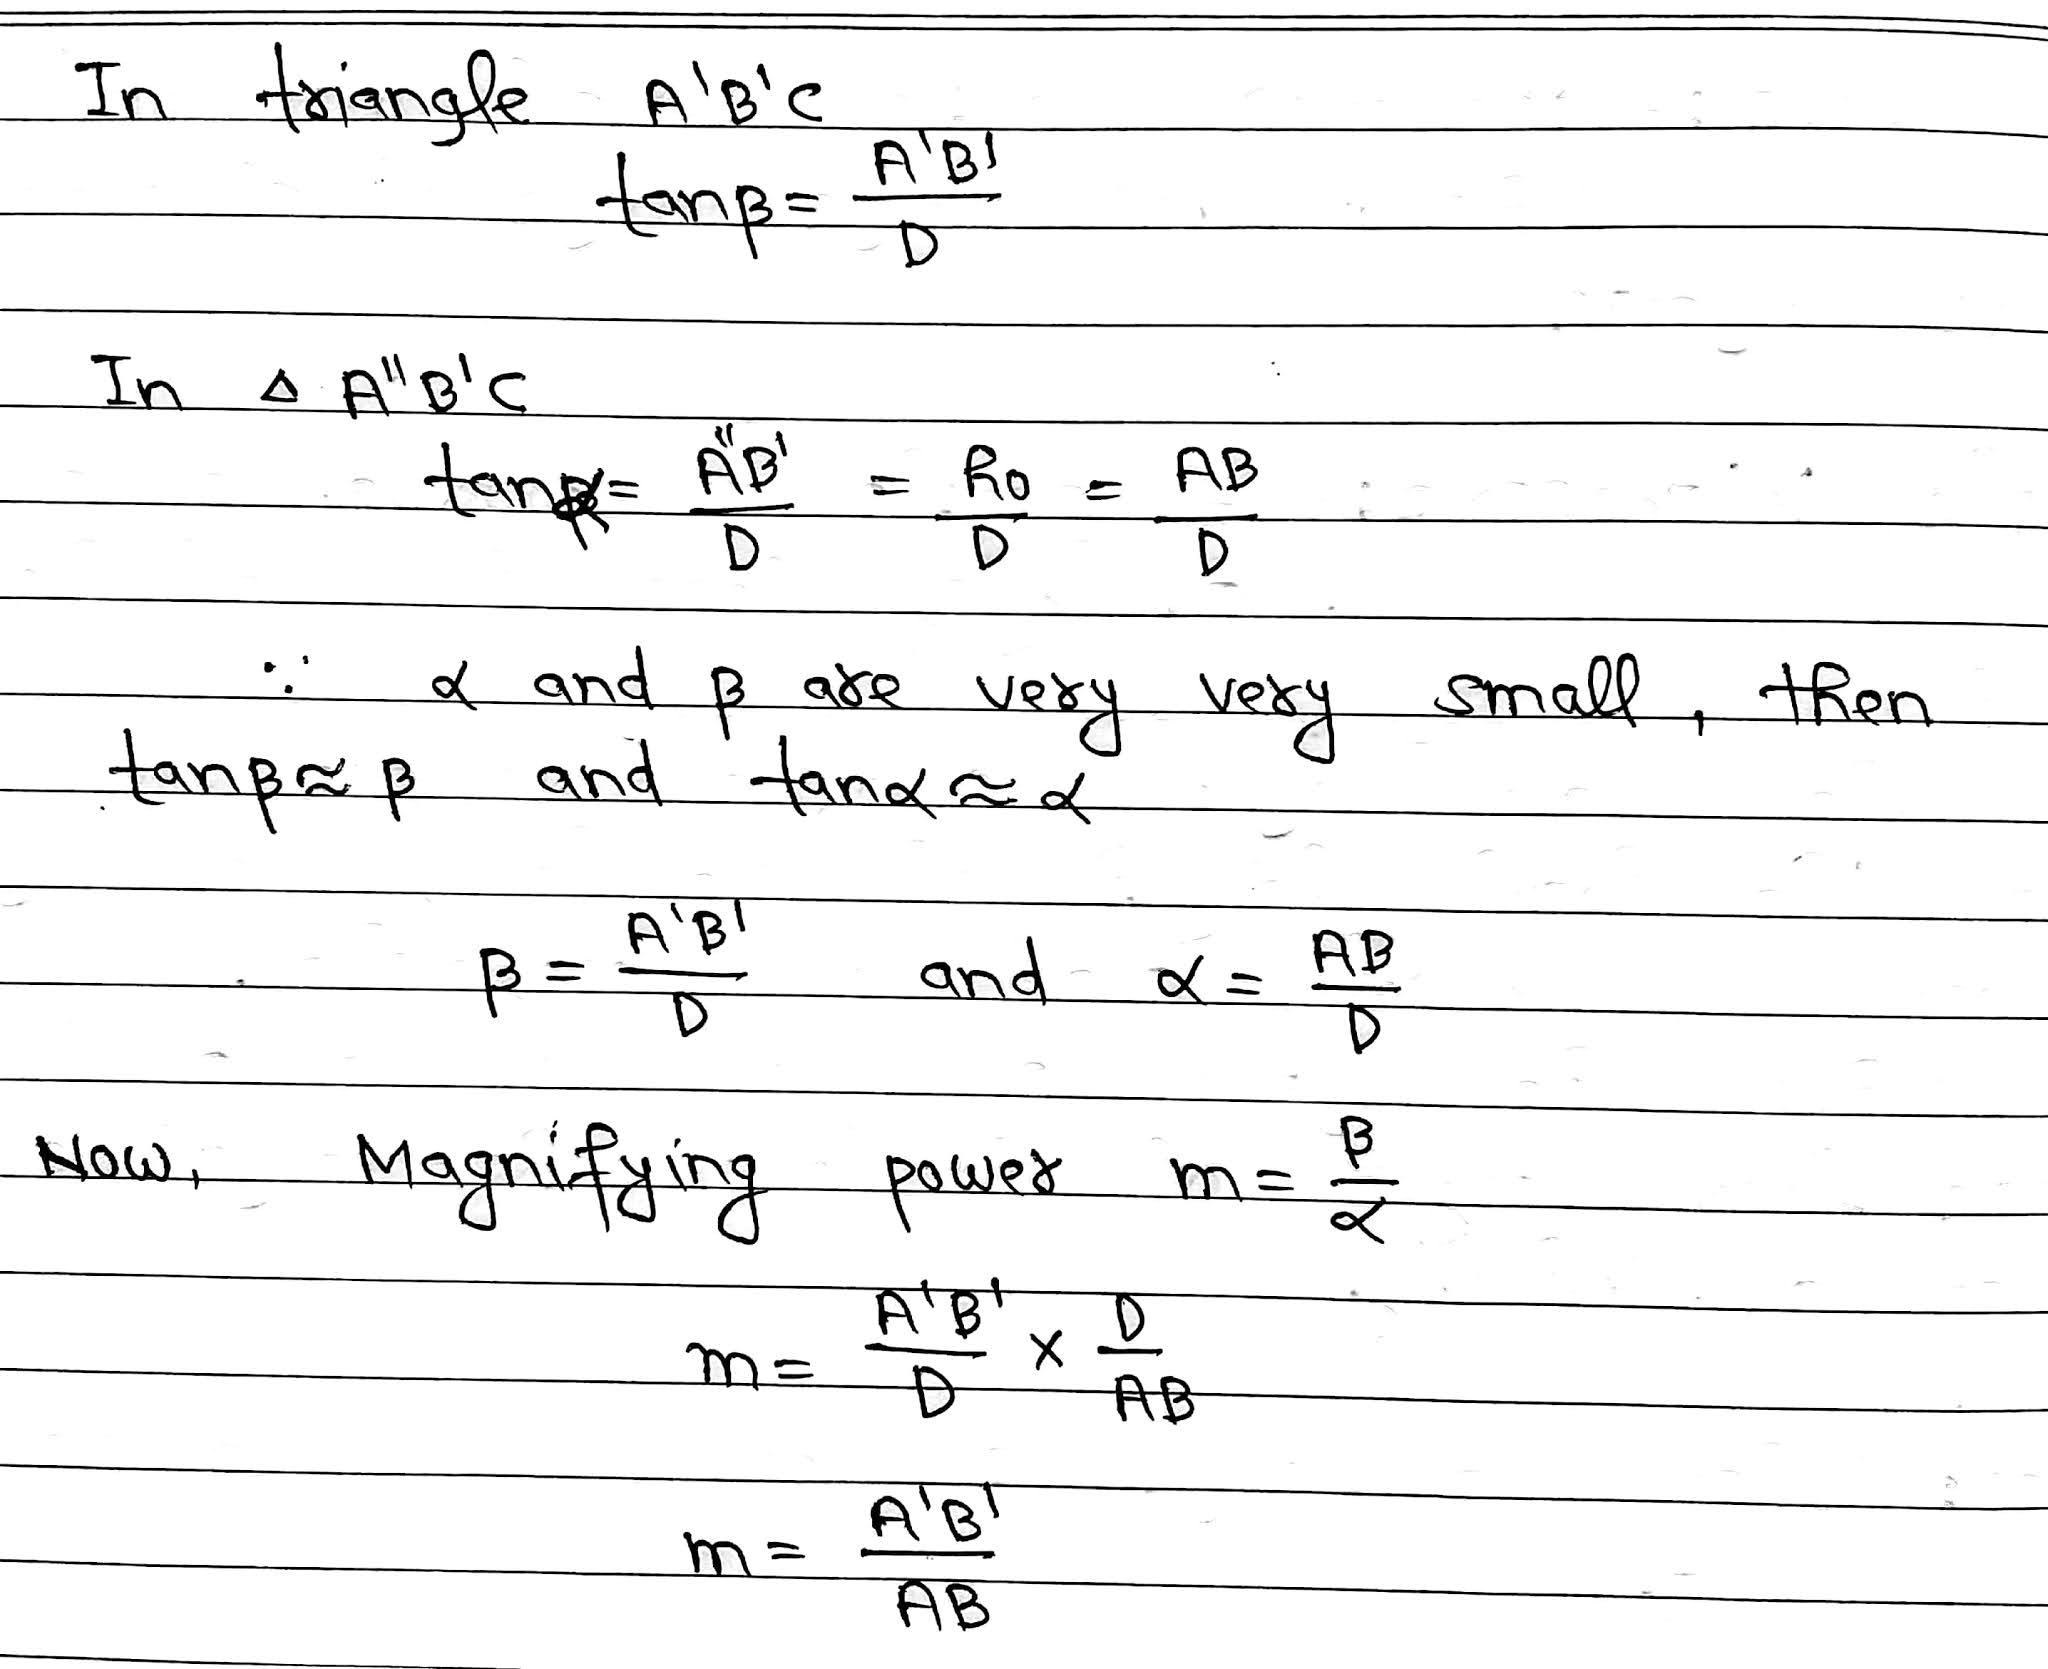 In triangle A'B'C
tanβ = A'B'/D
In △ A"B'C
tanα = A"B'/D = ho/D = AB/D
∵ α and β are very very small, then
tanβ ≈ β and tanα ≈ α
β = A'B'/D and α = AB/D
Now, Magnifying power m = β/α
m = A'B'/D × D/AB
m = A'B'/AB